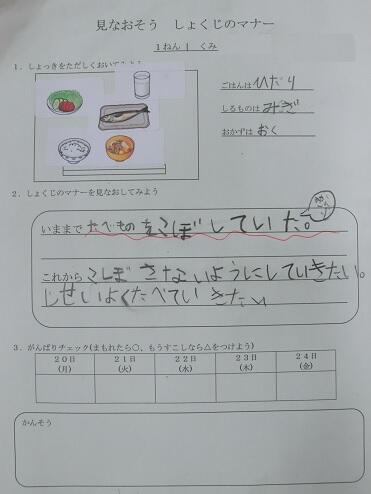 見なおそう しょくじのマナー
1ねん 1 くみ
1．しょっきをただしくおいてみよう
ごはんは ひだり
しるものは みぎ
おかずは おく
2．しょくじのマナーを見なおしてみよう
いままで たべものをこぼしていた。
これから こぼさないようにしていきたい。
しせいよくたべていきたい
3．がんばりチェック(まもれたら○、もうすこしなら△をつけよう)
20日 21日 22日 23日 24日
(月) (火) (水) (木) (金)
かんそう